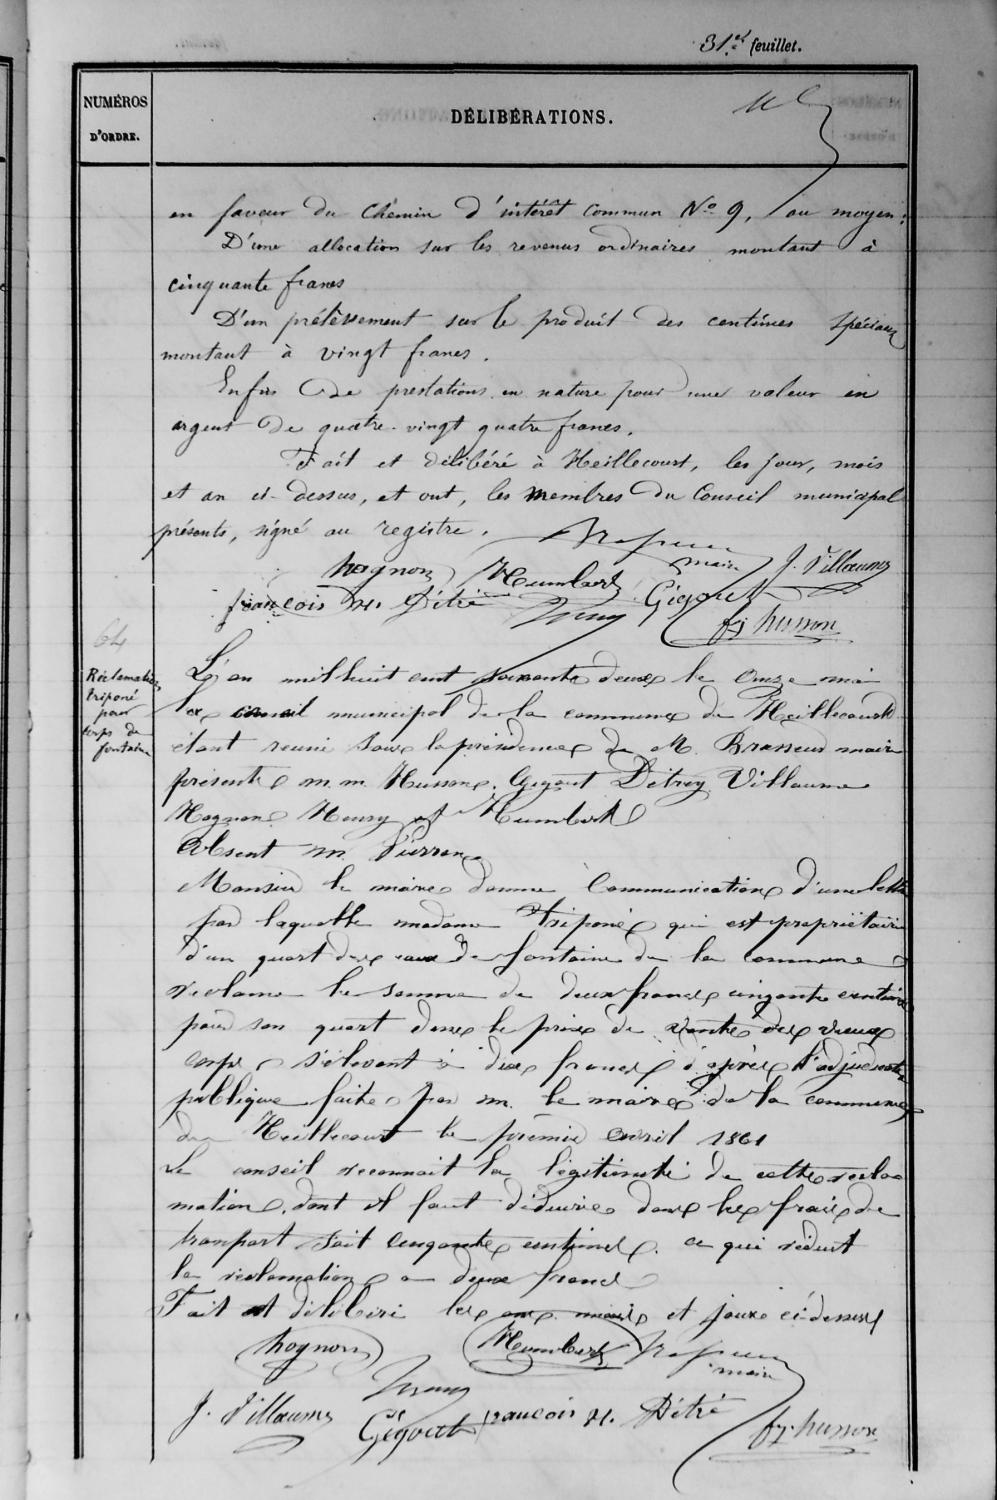 31.e feuillet.
NUMÉROS
D'ORDRE.
DÉLIBÉRATIONS.
en faveur du Chemin d'intérêt commun No 9, au moyen :
D'une allocation sur les revenus ordinaires montant à
cinquante francs
D'un prélèvement sur le produit des centimes spéciaux
montant à vingt francs.
Enfin de prestations en nature pour une valeur en
argent de quatre-vingt quatre francs.
Fait et délibéré à Heillecourt, les jour, mois
et an ci-dessus, et ont, les membres du Conseil municipal
présents, signé au registre.
maire J. Villaume
hognon Humbert Gegout
françois N. Détré
fj husson
64
Réclamation
triponé
pour
corps de
fontaine
L'an mil huit cent soixante deux le onze mai
le conseil municipal de la commune de Heillecourt
étant reuni sous la présidence de M. Brasseur maire
présents m.m. Husson, Gegout Détrey Villaume
Hognon Henry et Humbert
Absent m. Pierron
Monsieur le maire donne Communication d'une lettre
par laquelle madame Triponé qui est propriétaire
d'un quart des eaux de fontaine de la commune
reclame la somme de deux francs cinqante centimes
pour son quart dans le prix de vente des vieux
corps s'élevant à dix francs d'après l'adjudication
publique faite par m. le maire de la commune
de Heillecourt le premier avril 1861
Le conseil reconnait la légitimité de cette recla
mation, dont il faut déduire dans les frais de
tranport soit cinqante centimes. ce qui réduit
la reclamation a deux francs
Fait et déliberé les ans mois et jours ci-dessus
hognon Humbert
maire
J. Villaume Gegout françois N. Détré fj. husson